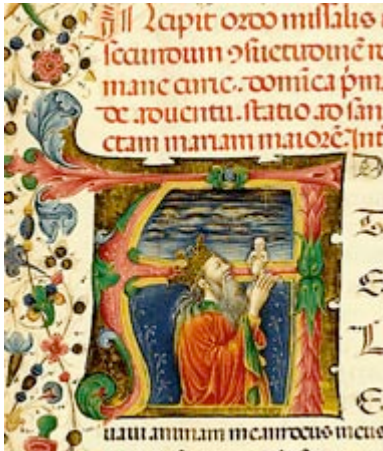 Incipit ordo missalis
secundum ɔsuetudinē r
mane curie. dominica p̄m
de aduentu. statio ad san
ctam mariam maiorē. Int
A
uaui animam meam deus meus